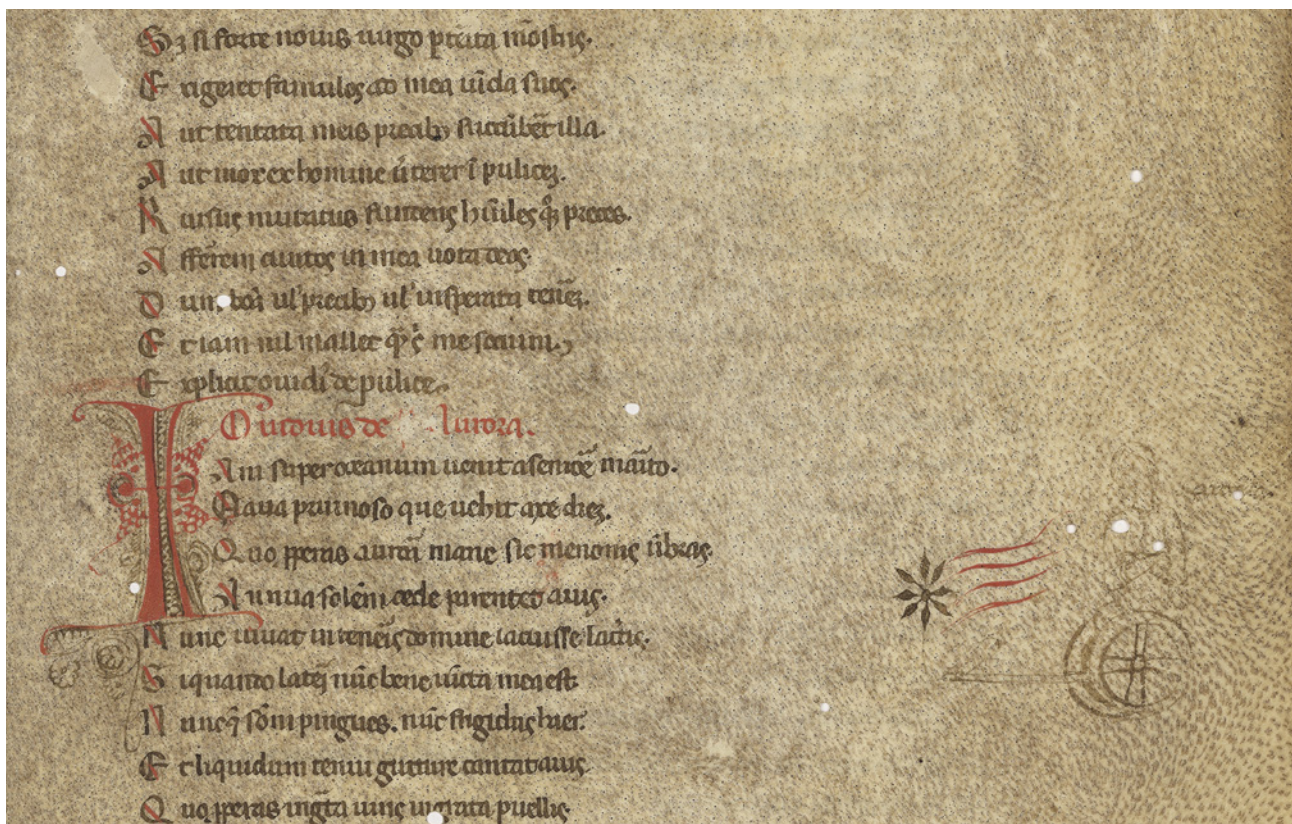 Sꝫ si forte nouis uirgo p̄tita mōstris.
Exigeret famulos ad mea uīcla suos.
Aut tentata meis precibꝫ succūbēt illa.
Aut mox ex homine ūterer ī pulicē.
Rursus mutatus fundens hūiles qͦꝫ preces.
Afferem cūctos in mea uota deos.
Dum ul' precibꝫ ul' insperata tenerē.
Et iam nil mallet qͣ̄ me socium.
Explicit ouidi' de pulice.
Ouidius de Aurora.
Iam super oceanum uenit a seniore māito.
Flaua pruinoso que uehit axe diē.
Quo ꝓperas aurora mane sic menonis ūbras.
Annua solēni cede parentet auis.
Nunc iuuat in teneris domine iacuisse lacertis.
Si quando laterī nūc bene iūcta meo est.
Nunc q̄ sōni pingues. nūc frigidus aer.
Et liquidum tenui gutture cantat auis.
Quo ꝓperas ingͣta uiris ingrata puellis.